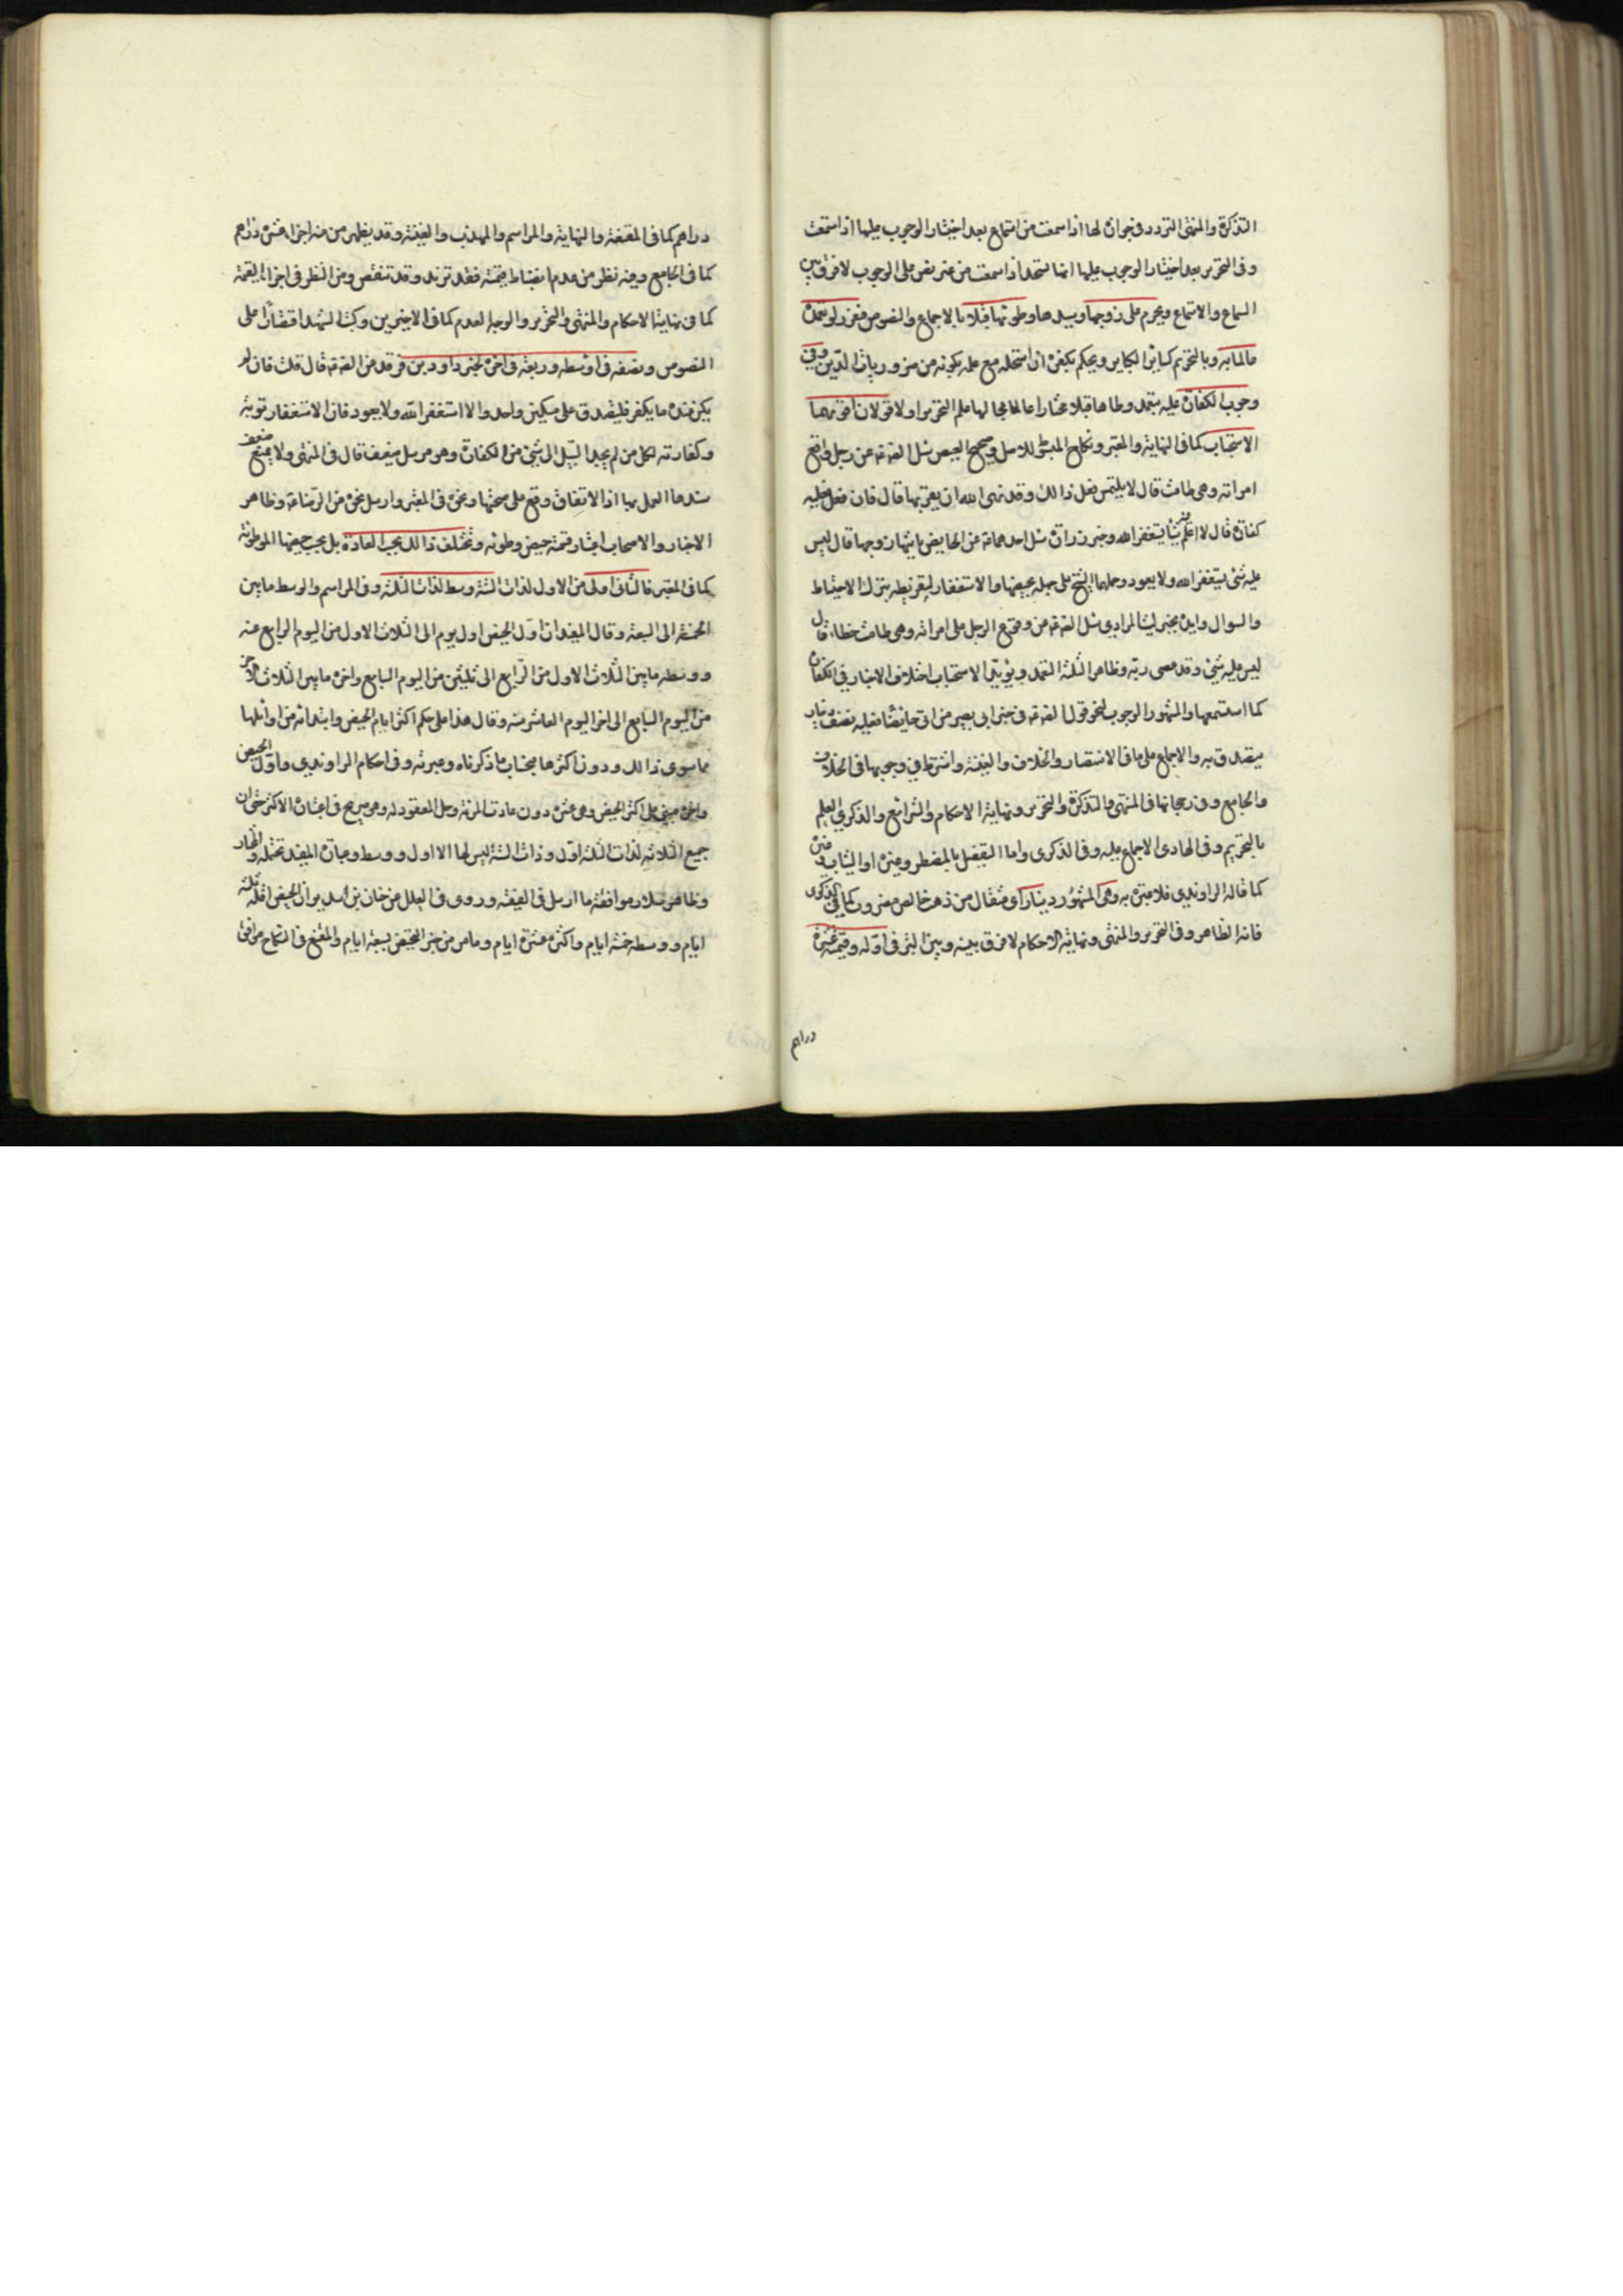 التذكرة والمنتهى التردد فى جوازه لها اذا سمعت من استماع بعد اختيار الوجوب عليها اذا استمعت
وفى التحرير بعد اختيار الوجوب عليها انما تسجد اذا سمعت من غير نص على الوجوب لا فرق بين
السماع والاستماع ويحرم على زوجها وسيدها وطوئها قبلا بالاجماع والنصوص فيعزر لو تعمده
عالما به وبالتحريم كسائر الكبائر ويحكم بكفره ان استحله مع علمه بكونه من ضروريات الدين وفى
وجوب الكفارة عليه بتعمد وطاها قبلا مختارا عالما بحالها علم التحريم اولا قولان اقربهما
الاستحباب كما فى النهاية والمعتبر ونكاح المبسوط للاصل وصحيح العيص سئل الصادق ع عن رجل واقع
امراته وهى طامث قال لا يلتمس فعل ذالك وقد نهى الله ان يقربها قال فان فعل فعليه
كفارة قال لا اعلم فيه شيئا يستغفر الله وخبر زرارة سئل احدهما ع عن الحايض ياتيها زوجها قال ليس
عليه شئ يستغفر الله ولا يعود وحملهما الشيخ على جهله بحيضها والاستغفار لتفريطه بترك الاحتياط
والسوال وايده بخبر ليث المرادى سئل الصادق ع عن وقوع الرجل على امراته وهى طامث خطاء قال
ليس عليه شئ وقد عصى ربه وظاهر الثلثة التعمد ويؤيد الاستحباب اختلاف الاخبار فى الكفارة
كما استسمعها والمشهور الوجوب لنحو قول الصادق ع فى خبر ابى بصير من اتى حايضا فعليه نصف دينار
يتصدق به والاجماع على ما فى الانتصار والخلاف والغنية واشترط فى وجوبها فى الخلاف
والجامع وفى رجحانها فى المنتهى والتذكرة والتحرير ونهاية الاحكام والشرائع والذكرى العلم
بالتحريم وفى الهادى الاجماع عليه وفى الذكرى واما التفصيل بالمضطر وغيره او الشاب وغيره
كما قاله الراوندى فلا عبرة به وهى المشهور دينار اى مثقال من ذهب خالص مضروب كما فى الذكرى
فانه الظاهر وفى التحرير والمنتهى ونهاية الاحكام لا فرق بينه وبين التبر فى اوله وقيمته عشرة
دراهم
دراهم كما فى المقنعة والنهاية والمراسم والمهذب والغنية وقد يظهر من منه اجزاء عشرة دراهم
كما فى الجامع وفيه نظر من عدم انضباط قيمته فقد تزيد وقد تنقص ومن النظر فى اجزاء القيمة
كما فى نهاية الاحكام والمنتهى والتحرير والوجه العدم كما فى الاخيرين وكتب الشهيد اقتصارا على
المنصوص ونصفه فى اوسطه وربعه فى اخره لخبر داود بن فرقد عن الصادق ع قال قلت فان لم
يكن عنده ما يكفر فليتصدق على مسكين واحد والا استغفر الله ولا يعود فان الاستغفار توبة
وكفارته لكل من لم يجد السبيل الى شئ من الكفارة وهو مرسل ضعيف قال فى المنتهى ولا يمنع ضعف
سندها العمل بها اذ الاتفاق وقع على صحتها ونحوه فى المعتبر وارسل نحوه عن الرضا ع وظاهر
الاخبار والاصحاب اعتبار قسمة حيض وطوئه وتختلف ذالك بحسب العادة بل بحسب حيضها الموطوئة
كما فى المعتبر فالثانى اولى من الاول لذات الستة وسط لذات الثلثة وفى المراسم والوسط ما بين
الخمسة الى السبعة وقال المفيد ان اول الحيض اول يوم الى الثلاث الاول من اليوم الرابع عنه
ووسطه ما بين الثلاث الاول من الرابع الى ثلثين من اليوم السابع واخره ما بين الثلاث الاخر
من اليوم السابع الى اخر اليوم العاشر منه وقال هذا على حكم اكثر ايام الحيض وابتدائه من اوائلها
بما سوى ذالك ودون اكثرها بحساب ما ذكرناه وعبرته وفى احكام الراوندى واول الحيض
واخره مبنى على اكثر الحيض وهى عشرة دون عادات المرئة وحل المعقود له وهو صريح فى اعتباره الاكثر حتى ان
جميع الثلاثه لذات الثلثة اول وذات الستة ليس لها الا اول ووسط وعبارة المفيد تحتمله والظاهر
وظاهر سلار موافقة ما ارسل فى الفقيه وروى فى العلل عن حنان بن سدير ان الحيض اقله ثلثة
ايام ووسطه خمسة ايام واكثره عشرة ايام وما مر من خبر الحيض سبعة ايام والمقنع فى النكاح موافق